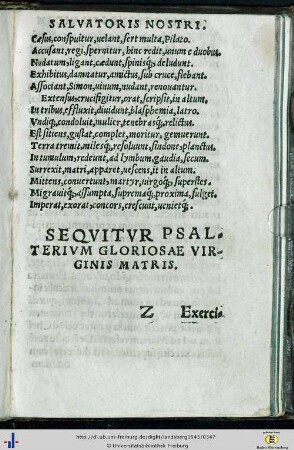 SALVATORIS NOSTRI.
Cæsus, conspuitur, uelant, fert multa, Pilato.
Accusant, regi, spernitur, hinc redit, unum e duobus.
Nudatum, ligant, cædunt, spinisq; deludunt.
Exhibitus, damnatur, amictus, sub cruce, flebant.
Associant, Simon, uinum, nudant, renouantur.
Extensus, crucifigitur, orat, scripsit, in altum.
In tribus, effluxit, diuidunt, blasphemia, latro.
Vndiq; condoluit, mulier, tenebrasq; relictus.
Est sitiens, gustat, complet, moritur, gemuerunt.
Terra tremit, milesq; resoluunt, sindone, planctus.
In tumulum, redeunt, ad lymbum, gaudia, secum.
Surrexit, matri, apparet, uescens, it in altum.
Mittens, conuertunt, martyr, uirgoq; superstes.
Migrauitq; assumpta, supremaq; proxima, fulget.
Imperat, exorat, concors, crescunt, uenietq;.
SEQVITVR PSAL-
TERIVM GLORIOSAE VIR-
GINIS MATRIS.
Z Exerci-
http://dl.ub.uni-freiburg.de/diglit/landsberg1545/0347
© Universitätsbibliothek Freiburg